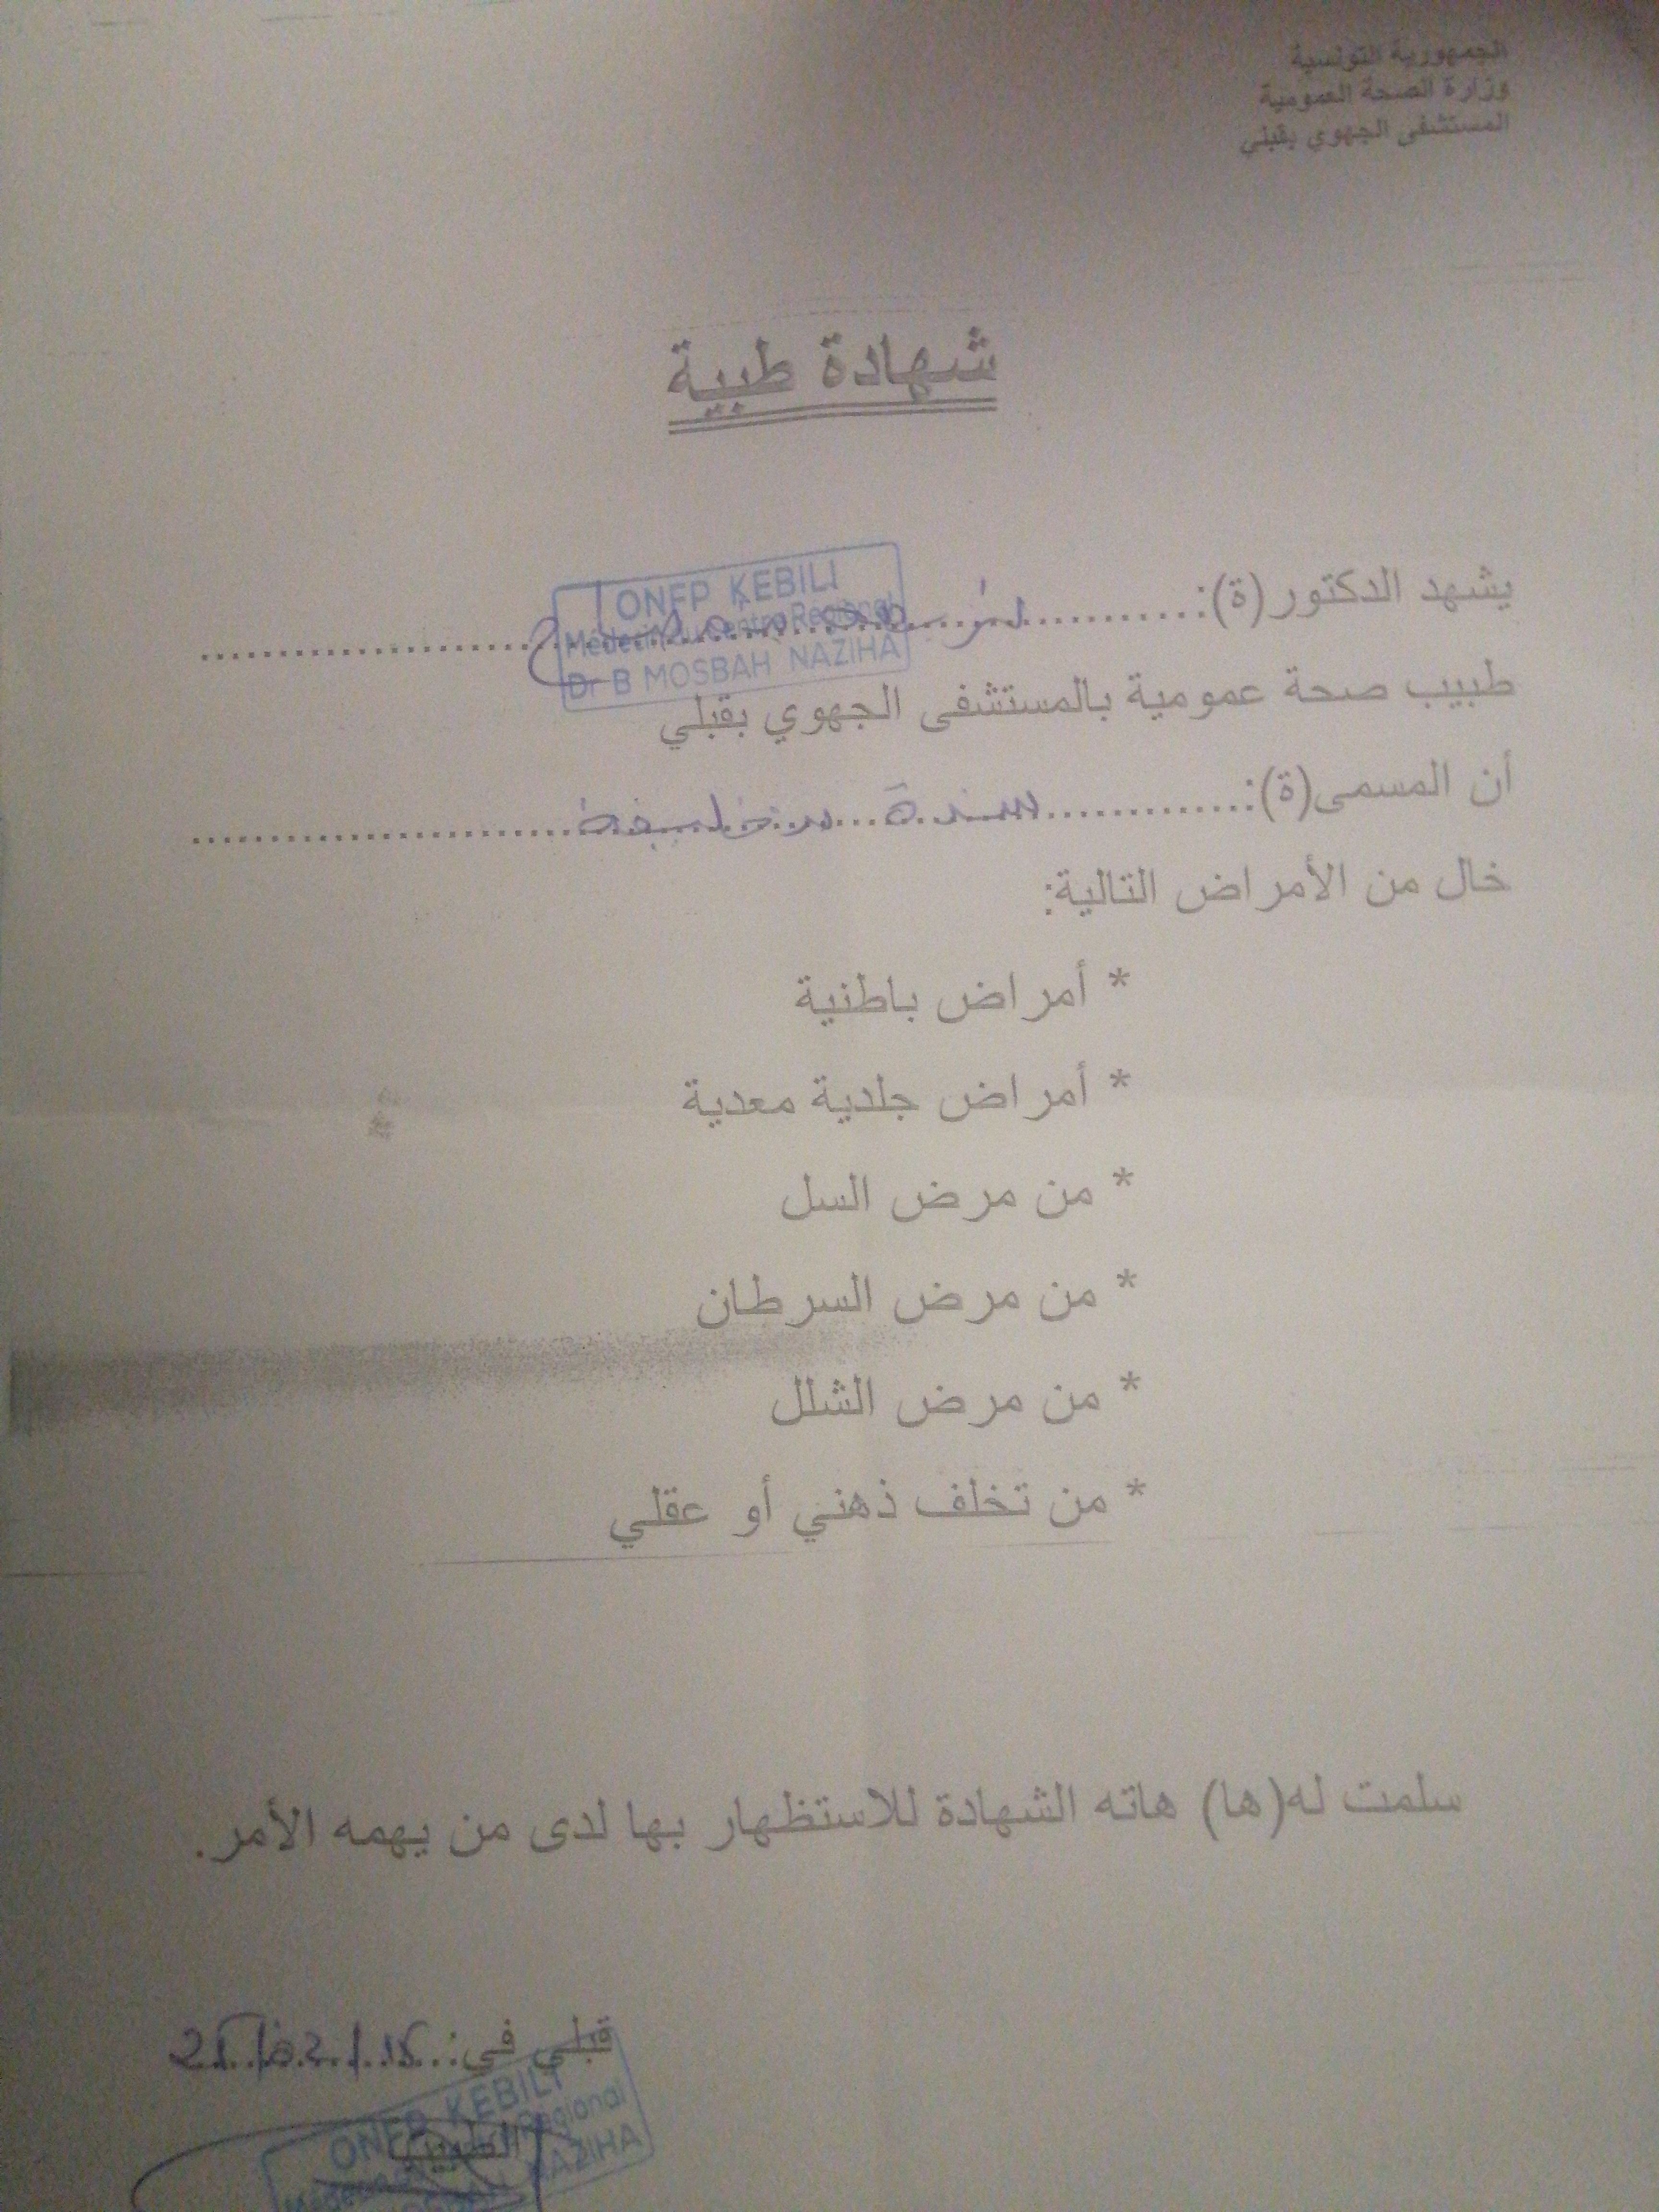 الجمهورية التونسية
وزارة الصحة العمومية
المستشفى الجهوي بقبلي
شهادة طبية
يشهد الدكتور(ة):
ONFP KEBILI
Médecin du Centre Regional
Dr B MOSBAH NAZIHA
طبيب صحة عمومية بالمستشفى الجهوي بقبلي
أن المسمى(ة):
خال من الأمراض التالية:
* أمراض باطنية
* أمراض جلدية معدية
* من مرض السل
* من مرض السرطان
* من مرض الشلل
* من تخلف ذهني أو عقلي
سلمت له(ها) هاته الشهادة للاستظهار بها لدى من يهمه الأمر.
قبلي في:
الطبيب
ONFP KEBILI
Regional
NAZIHA